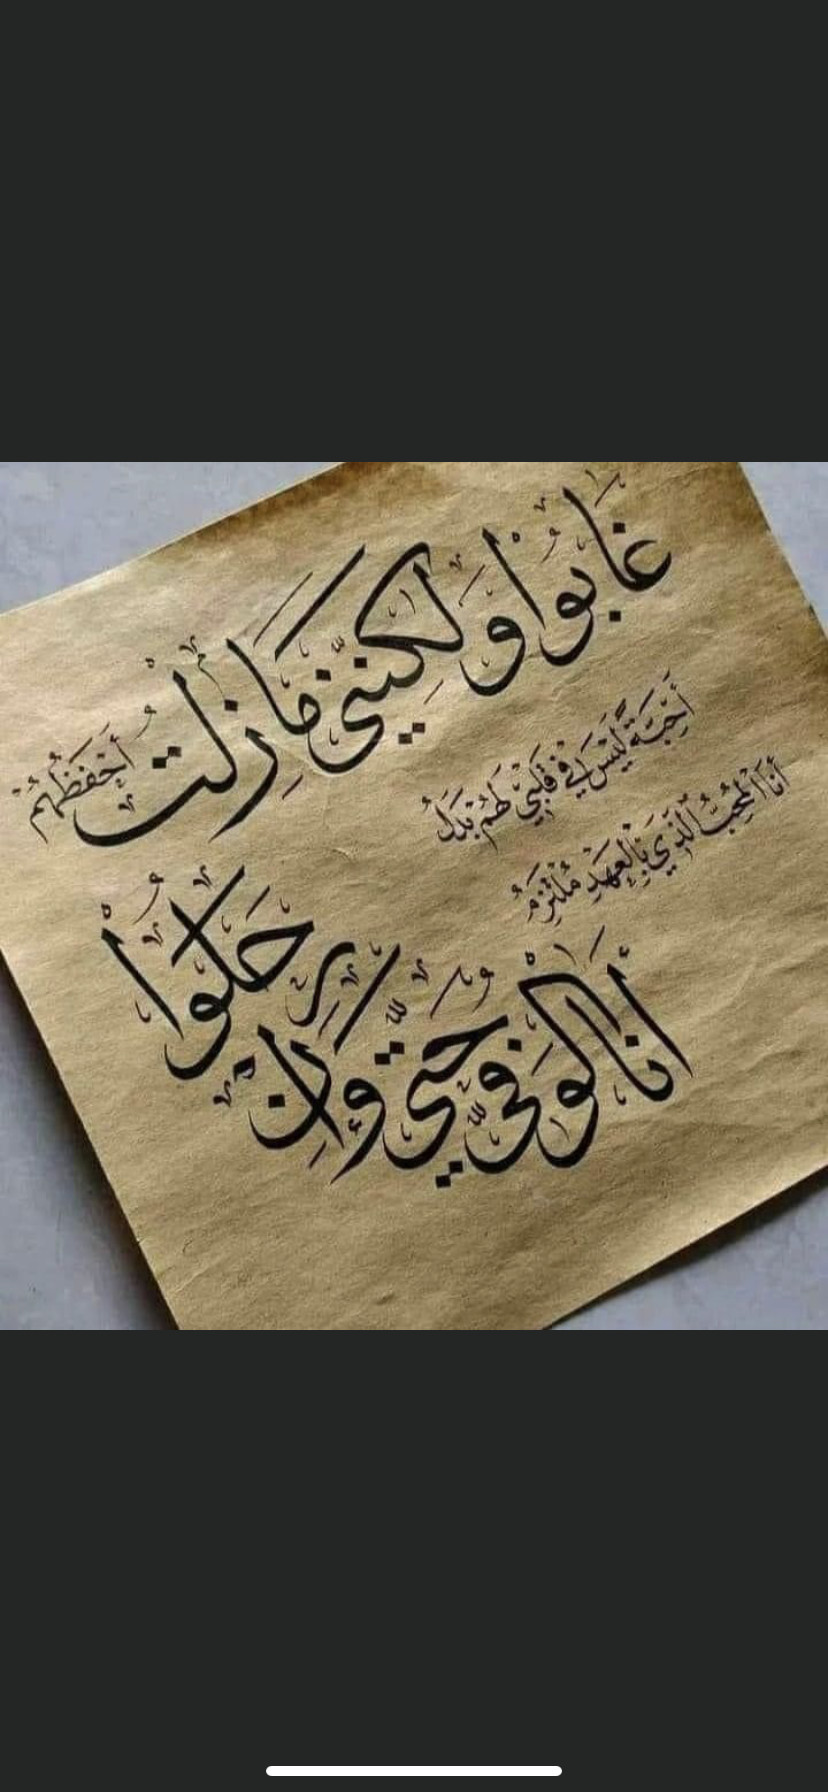 غَابُواْ وَلَكِنَّنِي مَازِلْتُ أَحْفَظُهُمْ
أَحِبَّةً لَيْسَ لِي فِي قَلْبِي لَهُمْ بَدَلُ
أَنَا الْمُحِبُّ الَّذِي بِالْعَهْدِ مُلْتَزِمُ
أَنَا الْوَفِيُّ حَتَّى وَإِنْ رَحَلُواْ